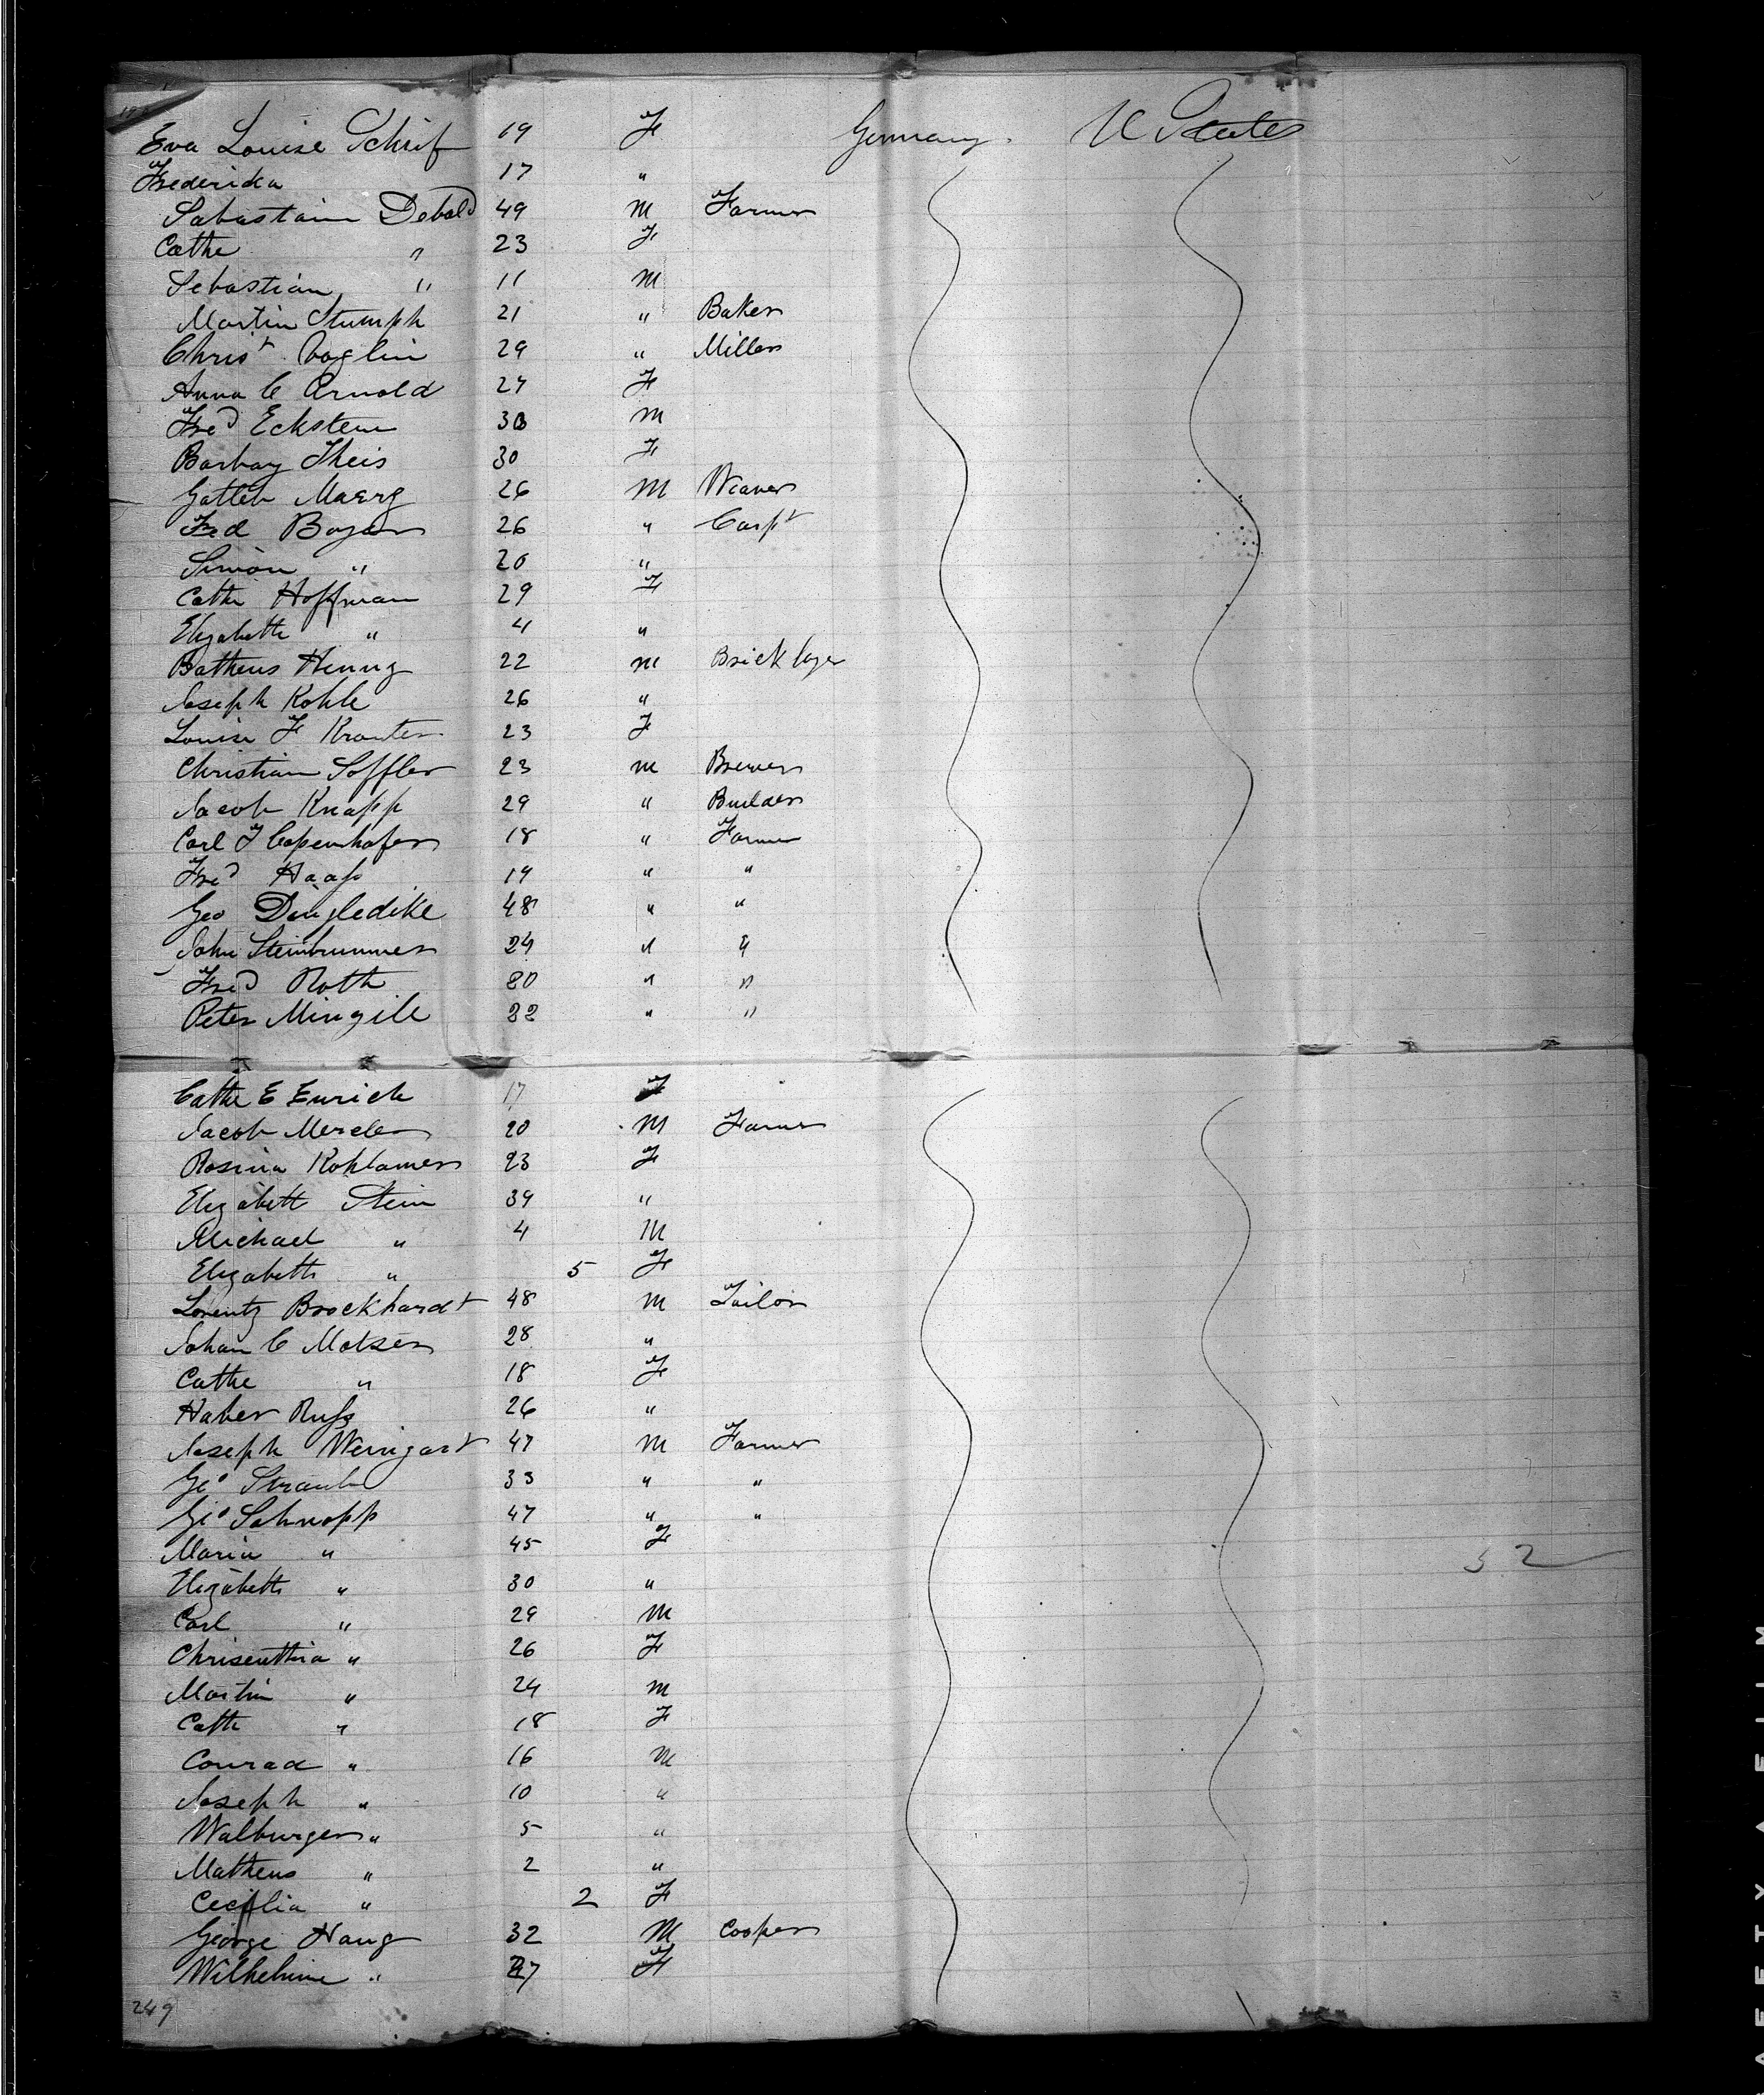 Eva Louise Schrif 19 F Germany. U States
Frederika 17 "
Sabastain Debald 49 M Farmer
Cathe " 23 F
Sebastian " 11 M
Martin Stumph 21 " Baker
Christ Voglin 29 " Miller
Anna C Arnold 27 F
Fred Eckstein 30 M
Barbay Theis 30 F
Gotleb Maerg 26 M Weaver
Fred Boyer 26 " Carpt
Simon " 20 "
Cathe Hoffman 29 F
Elizabeth " 4 "
Batheus Henng 22 M Brick layer
Joseph Kohle 26 "
Louise F Krauter 23 F
Christian Soffler 23 M Brewer
Jacob Knapp 29 " Builder
Carl F Copenhafer 18 " Farmer
Fred Haass 19 " "
Geo Dingledike 48 " "
John Steinbrunner 24 " "
Fred Roth 20 " "
Peter Mingile 22 " "
Cathe E Eurich 17 F
Jacob Mercle 20 M Farmer
Rosina Kohlamer 23 F
Elizabeth Stein 39 "
Michael " 4 M
Elizabeth " 5 F
Lorentz Brockhardt 48 M Tailor
Johan C Motser 28 "
Cathe " 18 F
Haber Russ 26 "
Joseph Weingart 47 M Farmer
Geo Straub 33 " "
Geo Schnopp 47 " "
Maria " 45 F
Elizabeth " 30 "
Carl " 29 M
Chrisenthia " 26 F
Martin " 24 M
Cathe " 18 F
Conrad " 16 M
Joseph " 10 "
Walburger " 5 "
Matheus " 2 "
Cecilia " 2 F
George Haug 32 M Cooper
Wilhelmine " 27 F
249
52